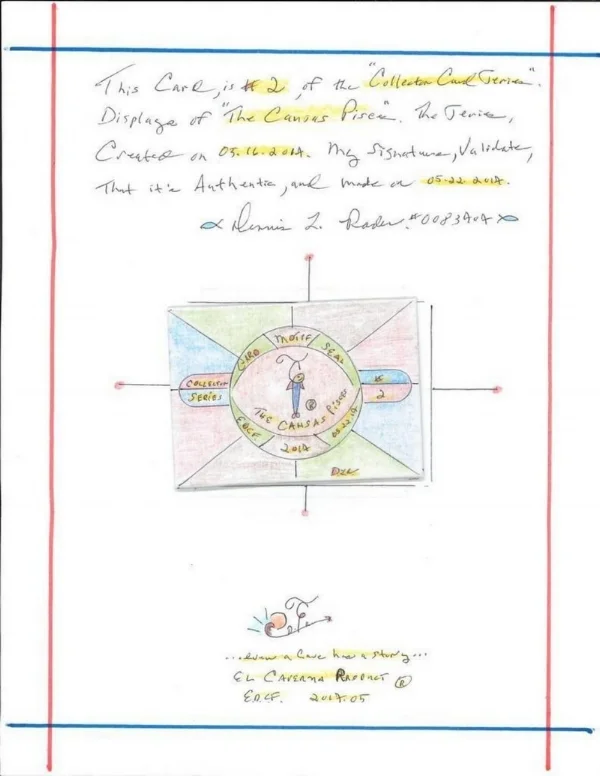 This Card, is # 2, of the "Collector Card Series".
Displays of "The Cansas Pisces". The Series,
Created on 05.16.2014. My Signature, Validate,
That it's Authentic, and made on 05.22.2014.
Dennis L. Rader. #0083707
CARD MOTIF SEAL
COLLECTOR
SERIES
#
2
THE CANSAS PISCES
EDCF. 2014 05.22.14
DLR
a Cave has a story...
EL CAVERNA PRODUCT ®
EDCF. 2014.05